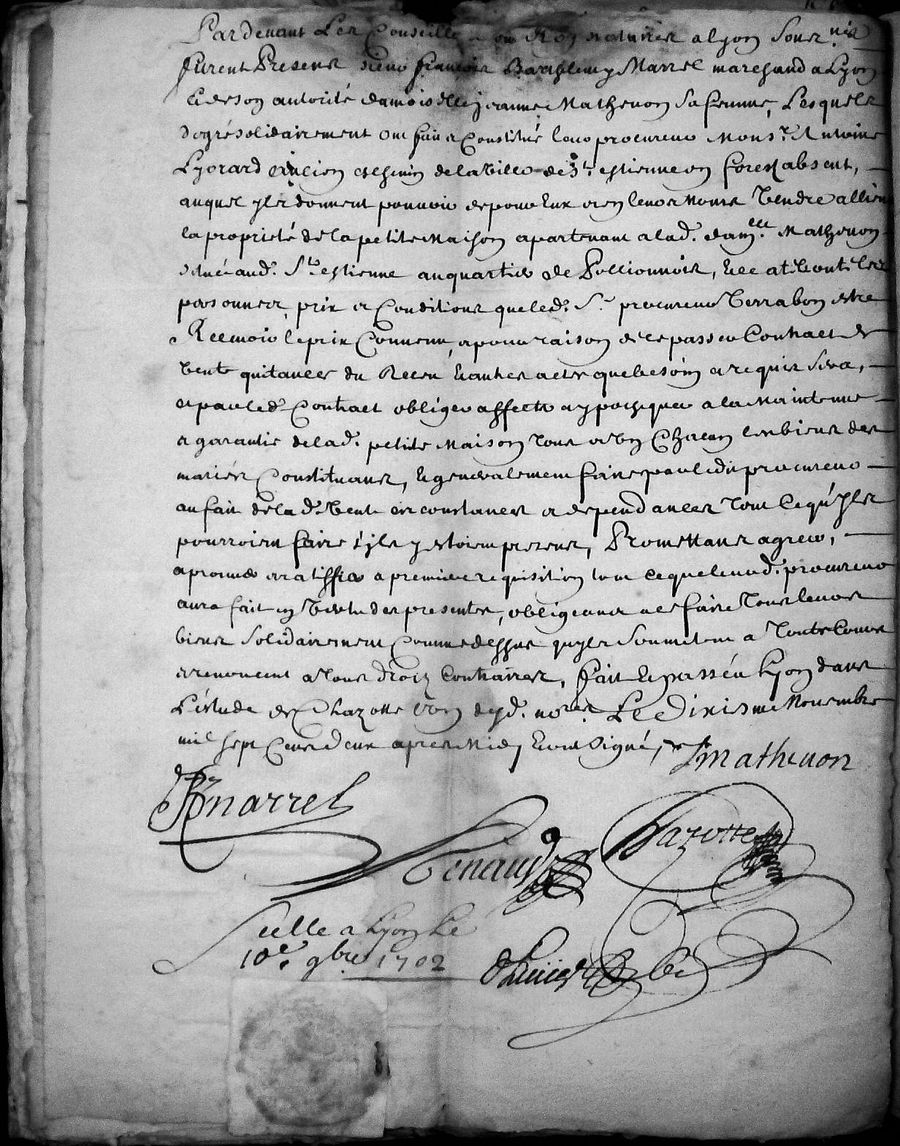 Pardevant Les Conseillers du Roy notaires a lyon sous.nés
furent Presens sieur françois Barthlemy Marrel marchand a Lyon
& de son autorité damoiselle jeanne Mathevon sa femme, Lesquels
de gré solidairement ont fait & Constitué leur procureur Mons.r Antoine
Lyorard ancien eschevin de la Ville de S.t estienne en forest absent,
auquel ils donnent pouvoir de pour Eux & en leurs Noms Vendre
la propriété de la petite Maison apartenant a lad. dam.lle Mathevon
situé aud. S.t estienne au quartier de Pollionnois,
personnes, prix & Conditions que led. S.r procureur Verra bon estre
Recevoir le prix Convenu, & pour raison de ce passer Contract de
Vente quitances du Receu & autres actes que besoin & requis sera,
& par led. Contract obliger affecter & ypothequer a la Maintenue
& garantie de lad. petite Maison Tous & Vn Chacun les biens des
mariés Constituans, & generalement faire par ledit procureur
au fait de la d. Vente circonstances & dependances Tout ce qu'yls
pourroient faire s'yls y estoient presens, Promettans agreer,
aprouver & ratiffier a premiere requisition tout ce que leurd. procureur
aura fait en Vertu des presentes, obligeans a ce faire Tous leurs
biens solidairement Comme dessus qu'yls soumettent a Toutes Cours
& renoncent a Tous droiz Contraires, fait & passé a Lyon dans
L'estude de Chazotte l'Vn desd. no.res Le Dixiesme Novembre
mil sept Cens deux apres Midy & ont signé,
J mathevon
marrel
Renaud
Chazotte
Scellé a Lyon Le
10.e 9bre 1702